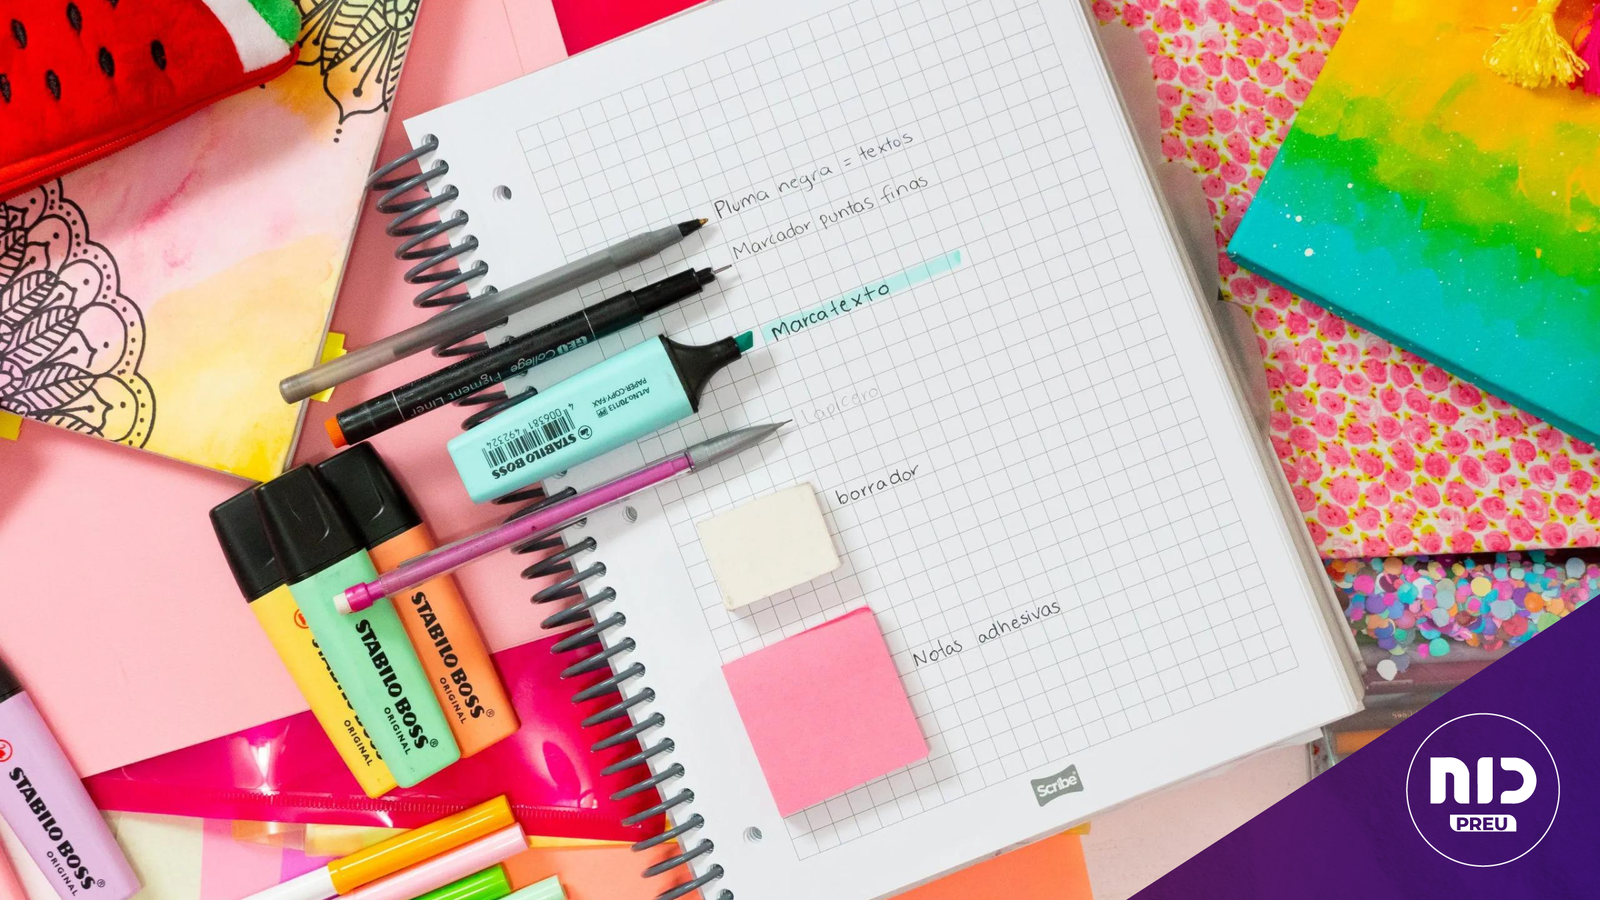 Pluma negra = textos
Marcador puntas finas
Marcatexto
Lapicero
borrador
Notas adhesivas
GEO College Pigment Liner
Art.No.70/113
PAPER-COPY-FAX
4 006381 492324
STABILO BOSS
STABILO BOSS
ORIGINAL
STABILO BOSS
ORIGINAL
STABILO BOSS
ORIGINAL
STABILO BOSS
ORIGINAL
Scribe
NID
PREU